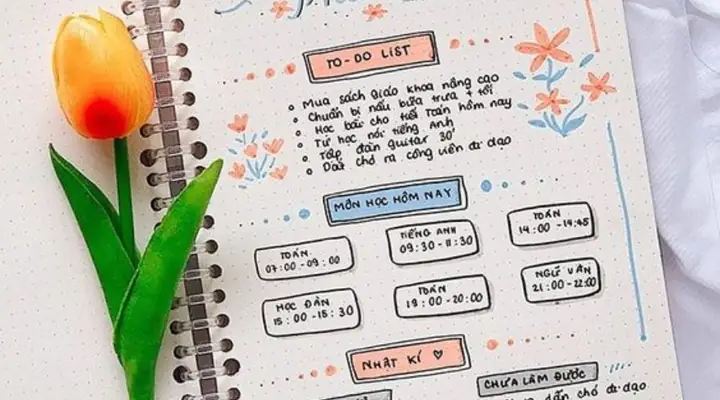 TO-DO LIST
Mua sách giáo khoa nâng cao
Chuẩn bị nấu bữa trưa + tối
Học bài cho tiết Toán hôm nay
Tự học nói tiếng Anh
Tập đàn guitar 30'
Dắt chó ra công viên đi dạo
MÔN HỌC HÔM NAY
TOÁN
07:00 - 09:00
TIẾNG ANH
09:30 - 11:30
TOÁN
14:00 - 14:45
HỌC ĐÀN
15:00 - 15:30
TOÁN
18:00 - 20:00
NGỮ VĂN
21:00 - 22:00
NHẬT KÍ ♡
CHƯA LÀM ĐƯỢC
dẫn chó đi dạo